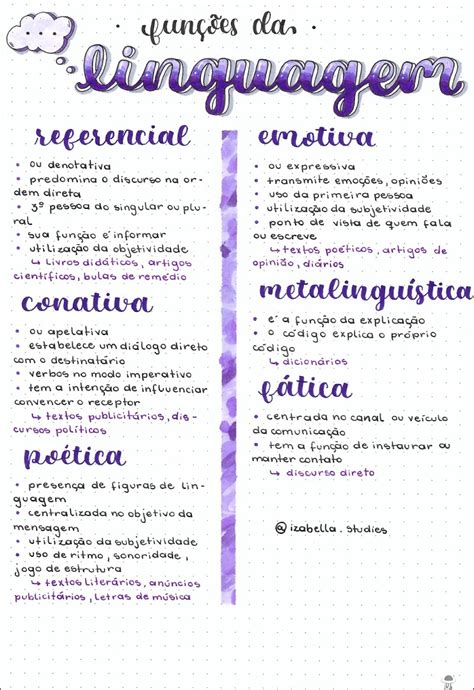 funções da
linguagem
referencial
• ou denotativa
• predomina o discurso na or-
dem direta
• 3ª pessoa do singular ou plu-
ral
• sua função é informar
• utilização da objetividade
↳ livros didáticos, artigos
científicos, bulas de remédio
conativa
• ou apelativa
• estabelece um diálogo direto
com o destinatário
• verbos no modo imperativo
• tem a intenção de influenciar
convencer o receptor
↳ textos publicitários, dis-
cursos políticos
poética
• presença de figuras de lin-
guagem
• centralizada no objetivo da
mensagem
• utilização da subjetividade
• uso de ritmo, sonoridade,
jogo de estrutura
↳ textos literários, anúncios
publicitários, letras de música
emotiva
• ou expressiva
• transmite emoções, opiniões
• uso da primeira pessoa
• utilização da subjetividade
• ponto de vista de quem fala
ou escreve
↳ textos poéticos, artigos de
opinião, diários
metalinguística
• é a função da explicação
• o código explica o próprio
código
↳ dicionários
fática
• centrada no canal ou veículo
da comunicação
• tem a função de instaurar ou
manter contato
↳ discurso direto
@izabella.studies